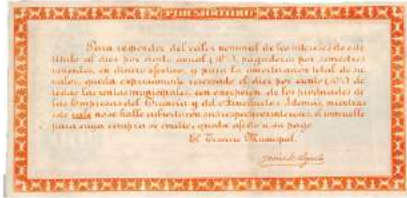 POR SU ORO
Para responder del valor nominal de los intereses de este
título al diez por ciento anual (10%), pagaderos por semestres
vencidos, en dinero efectivo, y para la amortización total de su
valor, queda expresamente reservado el diez por ciento (10%) de
todas las rentas municipales, con excepción de los productos de
las Empresas del Tranvía y del Acueducto. Además, mientras
este vale no se halle cubierto con sus respectivos intereses, el inmueble
para cuya compra se emitió, queda afecto a su pago.
El Tesorero Municipal,